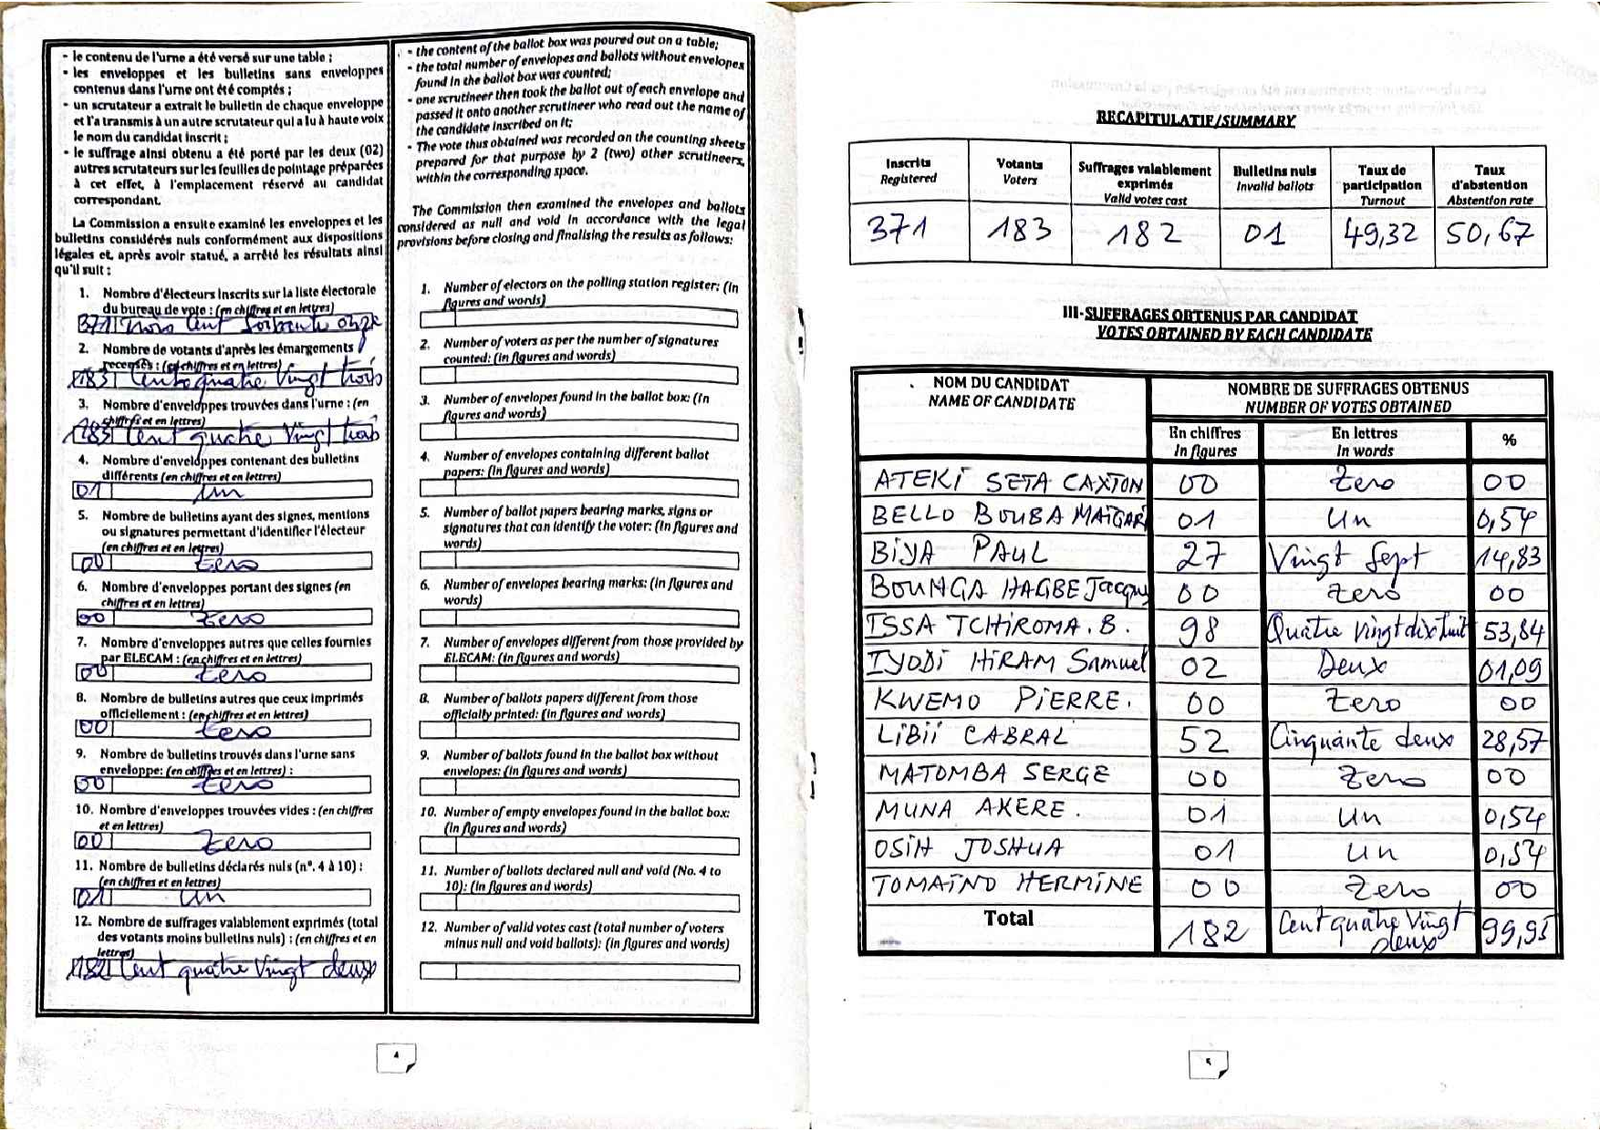 - le contenu de l'urne a été versé sur une table ;
- les enveloppes et les bulletins sans enveloppes
contenus dans l'urne ont été comptés ;
- un scrutateur a extrait le bulletin de chaque enveloppe
et l'a transmis à un autre scrutateur qui a lu à haute voix
le nom du candidat inscrit ;
- le suffrage ainsi obtenu a été porté par les deux (02)
autres scrutateurs sur les feuilles de pointage préparées
à cet effet, à l'emplacement réservé au candidat
correspondant.
La Commission a ensuite examiné les enveloppes et les
bulletins considérés nuls conformément aux dispositions
légales et, après avoir statué, a arrêté les résultats ainsi
qu'il suit :
1. Nombre d'électeurs inscrits sur la liste électorale
du bureau de vote : (en chiffres et en lettres)
371 trois cent soixante onze
2. Nombre de votants d'après les émargements
recensés : (en chiffres et en lettres)
183 Cent quatre Vingt trois
3. Nombre d'enveloppes trouvées dans l'urne : (en
chiffres et en lettres)
183 Cent quatre Vingt trois
4. Nombre d'enveloppes contenant des bulletins
différents (en chiffres et en lettres)
01 Un
5. Nombre de bulletins ayant des signes, mentions
ou signatures permettant d'identifier l'électeur
(en chiffres et en lettres)
00 Zero
6. Nombre d'enveloppes portant des signes (en
chiffres et en lettres)
00 Zero
7. Nombre d'enveloppes autres que celles fournies
par ELECAM : (en chiffres et en lettres)
00 Zero
8. Nombre de bulletins autres que ceux imprimés
officiellement : (en chiffres et en lettres)
00 Zero
9. Nombre de bulletins trouvés dans l'urne sans
enveloppe: (en chiffres et en lettres) :
00 Zero
10. Nombre d'enveloppes trouvées vides : (en chiffres
et en lettres)
00 Zero
11. Nombre de bulletins déclarés nuls (n°. 4 à 10) :
(en chiffres et en lettres)
01 Un
12. Nombre de suffrages valablement exprimés (total
des votants moins bulletins nuls) : (en chiffres et en
lettres)
182 Cent quatre Vingt deux
- the content of the ballot box was poured out on a table;
- the total number of envelopes and ballots without envelopes
found in the ballot box was counted;
- one scrutineer then took the ballot out of each envelope and
passed it onto another scrutineer who read out the name of
the candidate inscribed on it;
- The vote thus obtained was recorded on the counting sheets
prepared for that purpose by 2 (two) other scrutineers,
within the corresponding space.
The Commission then examined the envelopes and ballots
considered as null and void in accordance with the legal
provisions before closing and finalising the results as follows:
1. Number of electors on the polling station register: (in
figures and words)
2. Number of voters as per the number of signatures
counted: (in figures and words)
3. Number of envelopes found in the ballot box: (In
figures and words)
4. Number of envelopes containing different ballot
papers: (in figures and words)
5. Number of ballot papers bearing marks, signs or
signatures that can identify the voter: (In figures and
words)
6. Number of envelopes bearing marks: (in figures and
words)
7. Number of envelopes different from those provided by
ELECAM: (in figures and words)
8. Number of ballots papers different from those
officially printed: (in figures and words)
9. Number of ballots found in the ballot box without
envelopes: (in figures and words)
10. Number of empty envelopes found in the ballot box:
(in figures and words)
11. Number of ballots declared null and void (No. 4 to
10): (in figures and words)
12. Number of valid votes cast (total number of voters
minus null and void ballots): (in figures and words)
4
RECAPITULATIF/SUMMARY
Inscrits Registered | Votants Voters | Suffrages valablement exprimés Valid votes cast | Bulletins nuls Invalid ballots | Taux de participation Turnout | Taux d'abstention Abstention rate
371 | 183 | 182 | 01 | 49,32 | 50,67
III-SUFFRAGES OBTENUS PAR CANDIDAT
VOTES OBTAINED BY EACH CANDIDATE
NOM DU CANDIDAT NAME OF CANDIDATE | NOMBRE DE SUFFRAGES OBTENUS NUMBER OF VOTES OBTAINED
En chiffres In figures | En lettres In words | %
ATEKI SETA CAXTON 00 Zero 00
BELLO BOUBA MAIGARI 01 Un 0,54
BIYA PAUL 27 Vingt Sept 14,83
BOUNGA HAGBE Jacques 00 Zero 00
ISSA TCHIROMA. B. 98 Quatre Vingt dix huit 53,84
IYODI HIRAM Samuel 02 Deux 01,09
KWEMO PIERRE. 00 Zero 00
LIBII CABRAL 52 Cinquante deux 28,57
MATOMBA SERGE 00 Zero 00
MUNA AKERE. 01 Un 0,54
OSIH JOSHUA 01 Un 0,54
TOMAINO HERMINE 00 Zero 00
Total 182 Cent quatre Vingt deux 99,95
5